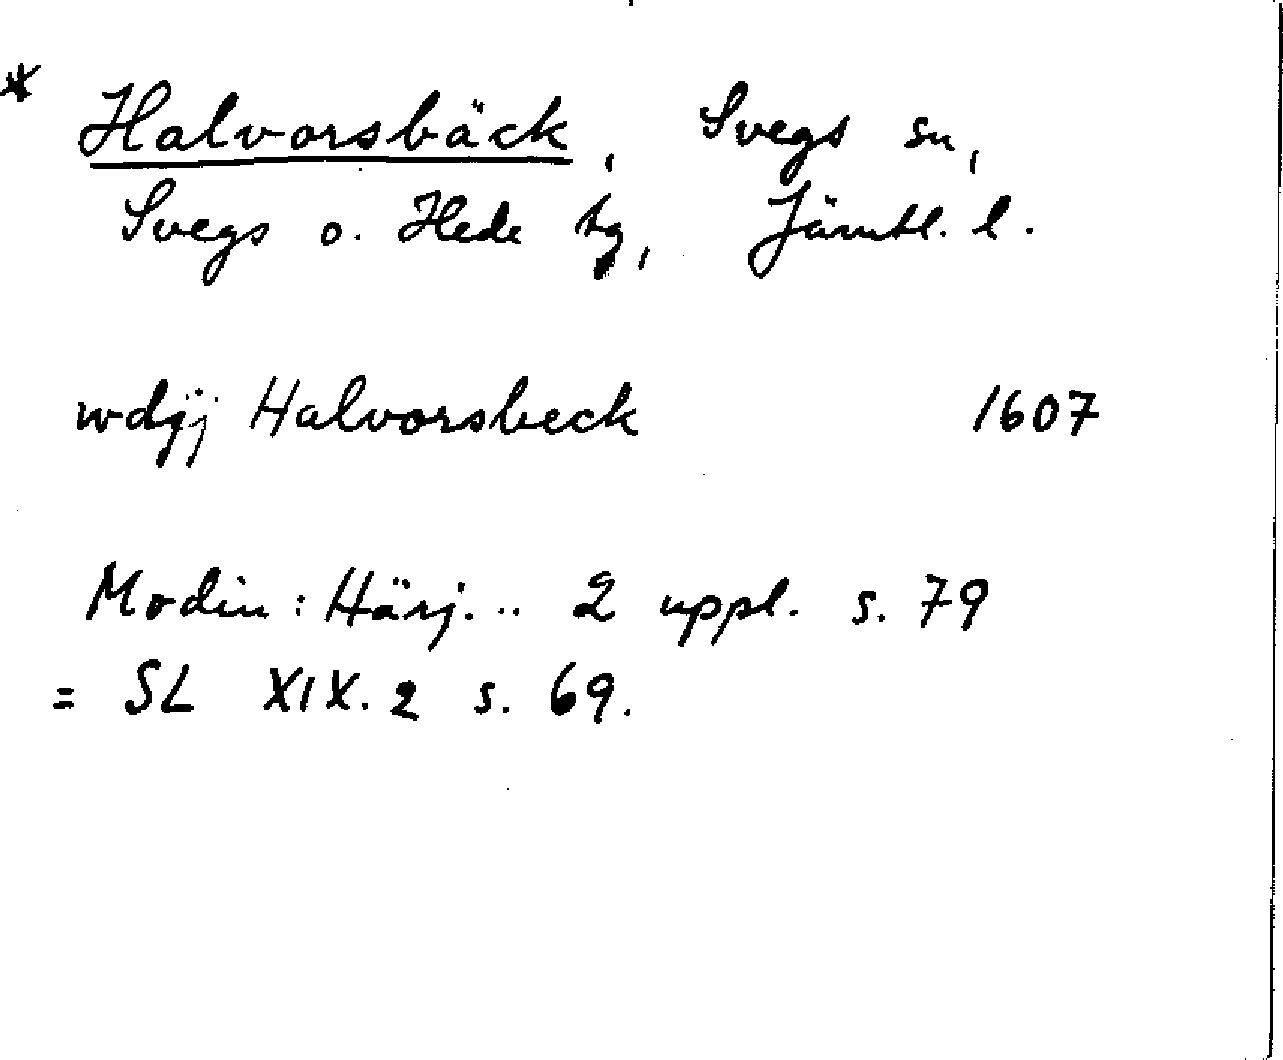 * Halvorsbäck, Svegs sn,
Svegs o. Hede tg, Jämtl. l.
wdÿj Halvorsbeck 1607
Modin: Härj... 2 uppl. s. 79
= SL XIX. 2 s. 69.